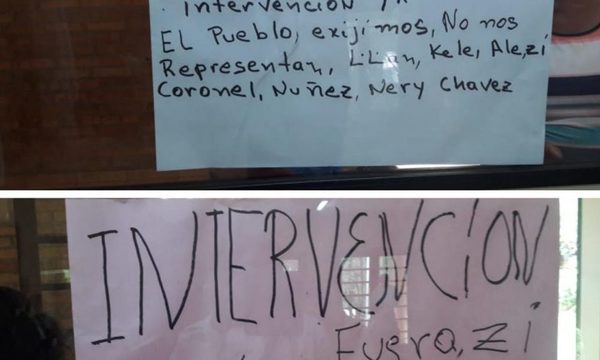 Intervención Ya
EL Pueblo, exijímos, No nos
Representan, Lilian, Kele, Ale, zí
Coronel, Nuñez, Nery Chavez
INTERVENCÍON
Fuera, Zí